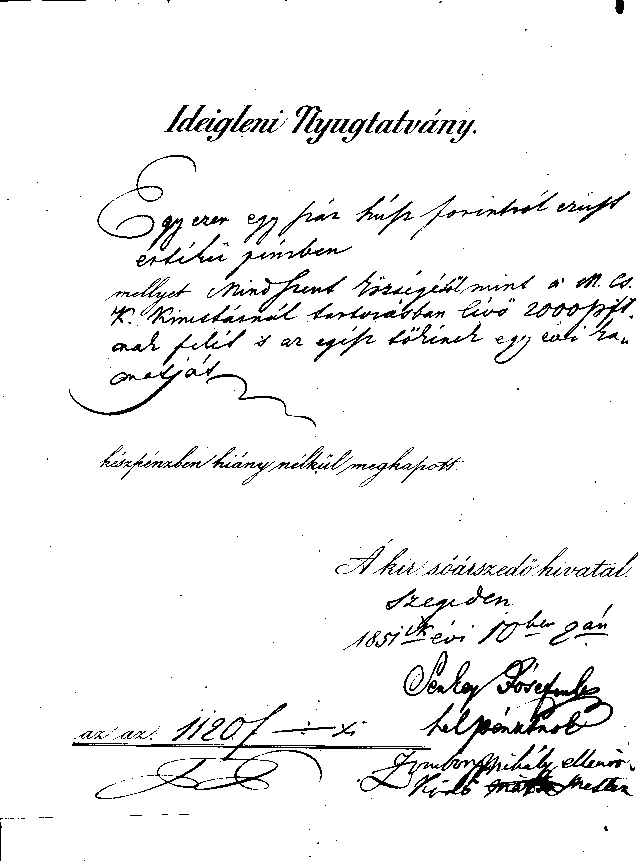 Ideigleni Nyugtatvány.
Egy ezer egy száz húsz forintról ezüst
értékű pénzben
mellyet Mind Szent Községétől mint a M. Cs.
K. Kincstárnál tartozásban lévő 2000 pft.
nak felét is az egész tőkének egy évi ka„
matját
készpénzben hiány nélkül meghapott.
A kir sóárszedő hivatal.
Szegeden
1851ik évi 10ber 9án
helypénztárnok
az az. 1120f — x.
Mihály ellenőr.
mester